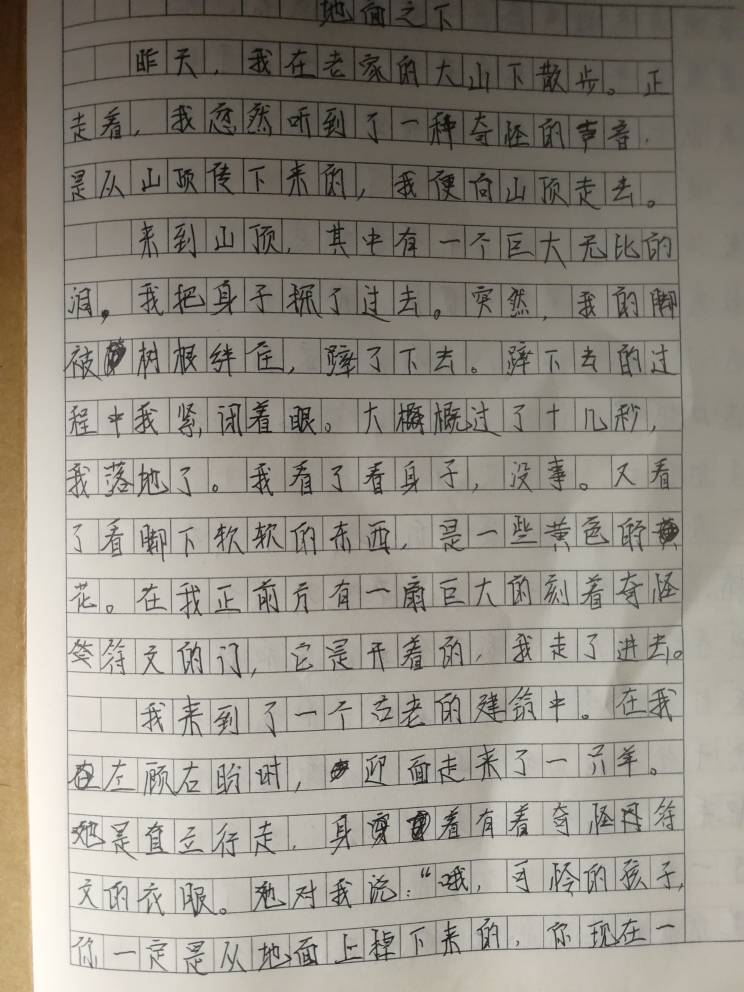 地面之下
昨天，我在老家的大山下散步。正
走着，我忽然听到了一种奇怪的声音，
是从山顶传下来的，我便向山顶走去。
来到山顶，其中有一个巨大无比的
洞。我把身子探了过去。突然，我的脚
被树根绊住，摔了下去。摔下去的过
程中我紧闭着眼。大概概过了十几秒，
我落地了。我看了看身子，没事。又看
了看脚下软软的东西，是一些黄色的
花。在我正前方有一扇巨大的刻着奇怪
符文的门，它是开着的，我走了进去。
我来到了一个古老的建筑中。在我
左顾右盼时，迎面走来了一只羊。
她是直立行走，身着有着奇怪符
文的衣服。她对我说：“哦，可怜的孩子，
你一定是从地面上掉下来的，你现在一